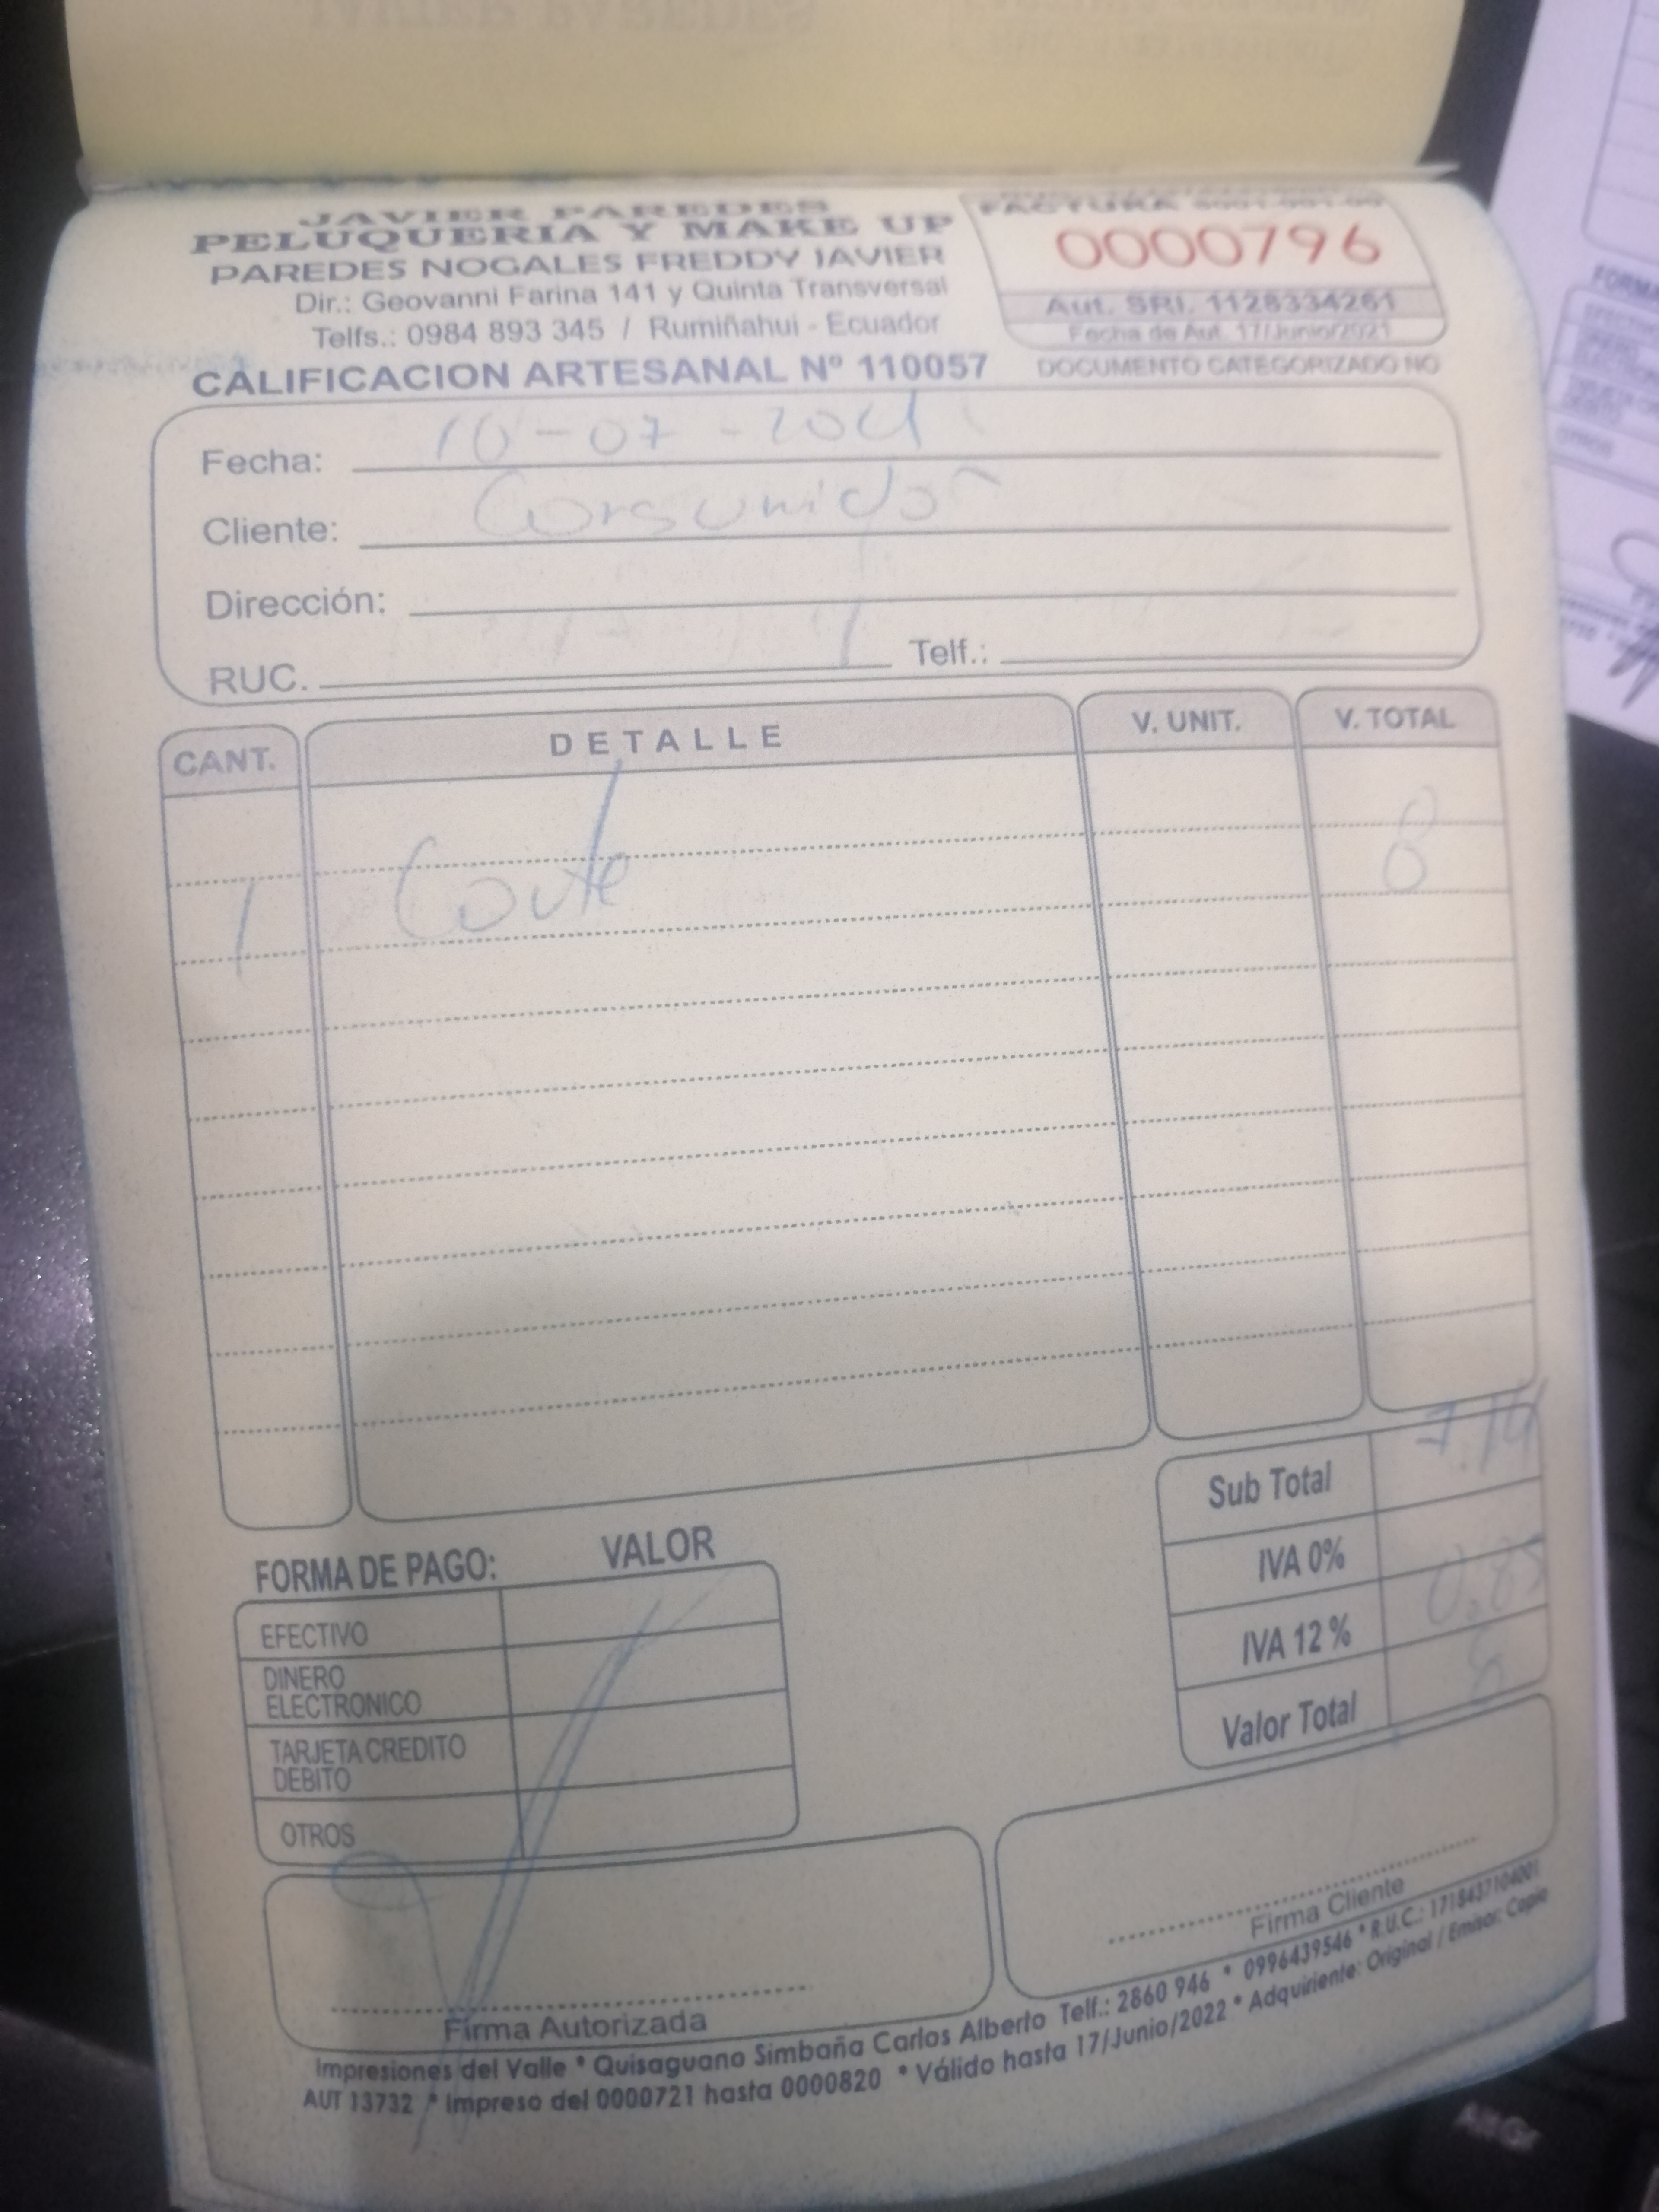 JAVIER PAREDES
PELUQUERIA Y MAKE UP
PAREDES NOGALES FREDDY JAVIER
Dir.: Geovanni Farina 141 y Quinta Transversal
Telfs.: 0984 893 345 / Rumiñahui - Ecuador
CALIFICACION ARTESANAL Nº 110057
FACTURA
0000796
Aut. SRI. 1128334261
Fecha de Aut. 17/Junio/2021
DOCUMENTO CATEGORIZADO NO
Fecha: 10-07-2021
Cliente: Consumidor
Dirección:
RUC. Telf.:
CANT. DETALLE V. UNIT. V. TOTAL
1 Corte 8
Sub Total 7.14
IVA 0%
IVA 12% 0.85
Valor Total 8
FORMA DE PAGO: VALOR
EFECTIVO
DINERO
ELECTRONICO
TARJETA CREDITO
DEBITO
OTROS
Firma Autorizada
Firma Cliente
Impresiones del Valle * Quisaguano Simbaña Carlos Alberto Telf.: 2860 946 * 0996439546 * R.U.C.: 1718437104001
AUT 13732 * Impreso del 0000721 hasta 0000820 * Válido hasta 17/Junio/2022 * Adquiriente: Original / Emisor: Copia
FORMA
OTROS
Alt Gr